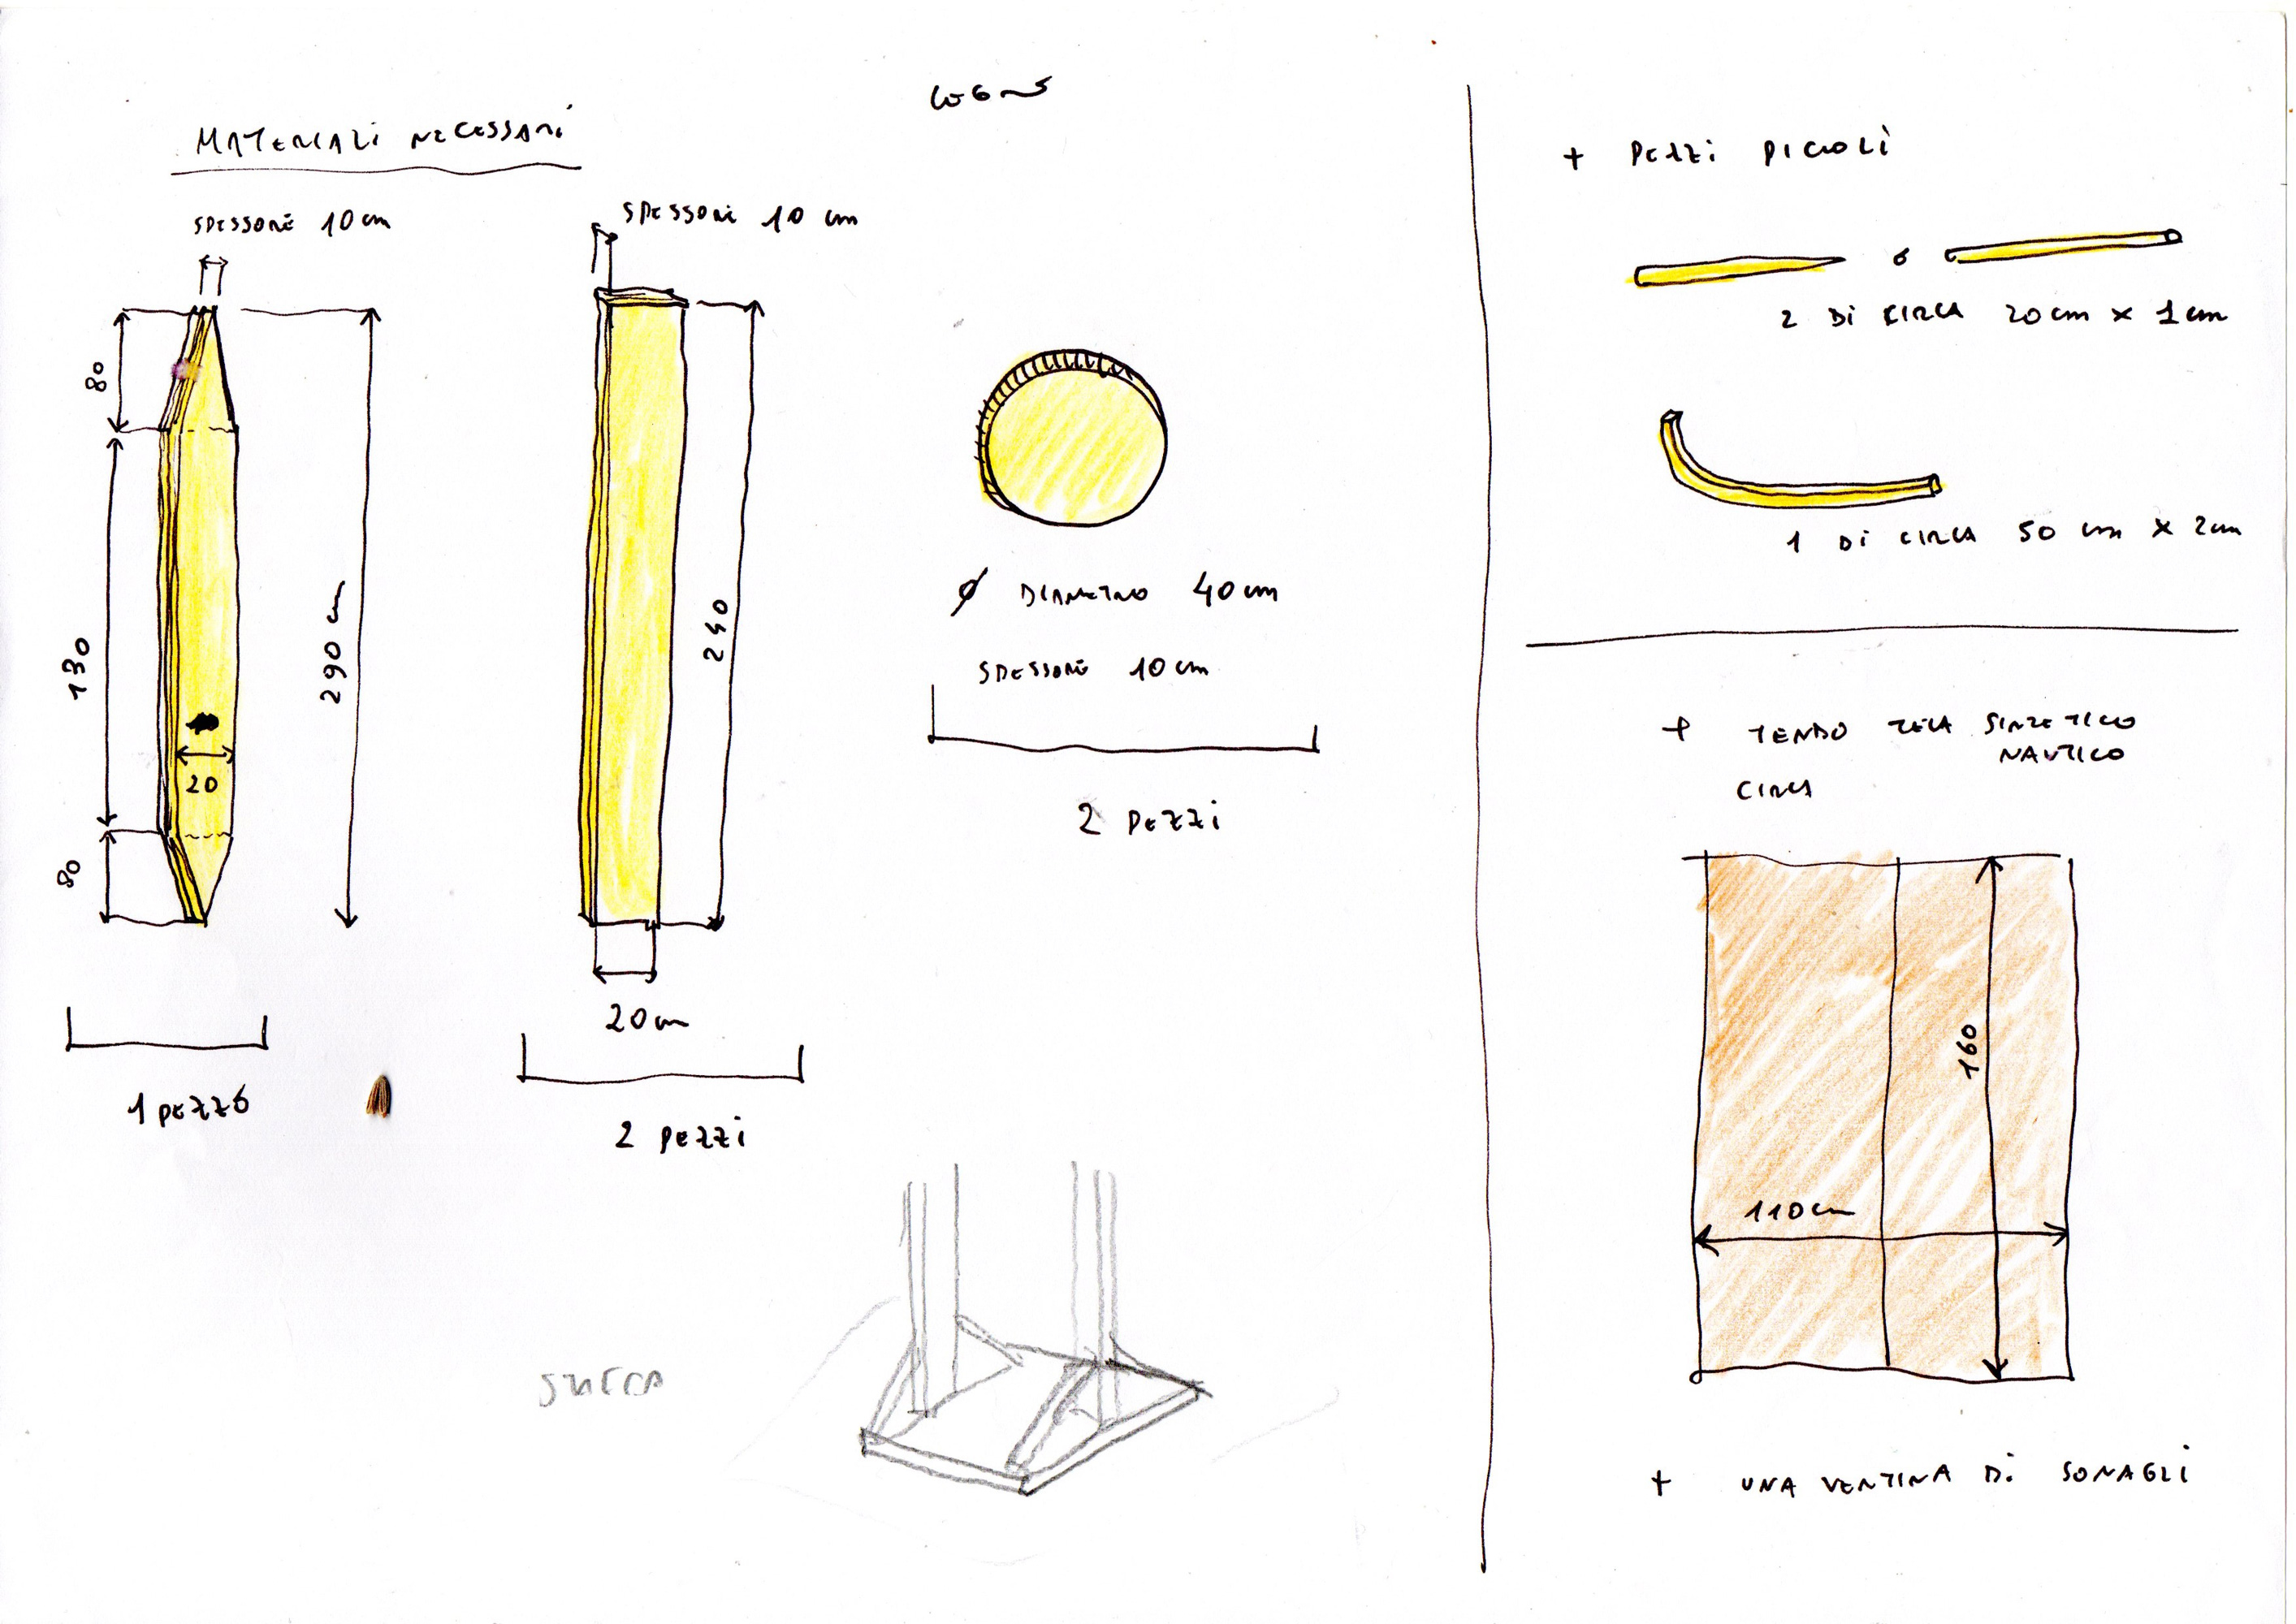 LEGNO
MATERIALI NECESSARI
SPESSORE 10 cm
80
130
20
80
290 cm
1 PEZZO
SPESSORE 10 cm
240
20 cm
2 PEZZI
Ø DIAMETRO 40 cm
SPESSORE 10 cm
2 PEZZI
+ PEZZI PICCOLI
O
2 DI CIRCA 20 cm x 1 cm
1 DI CIRCA 50 cm x 2 cm
+ TENDO TELA SINTETICO
NAUTICO
CIRCA
160
110 cm
+ UNA VENTINA DI SONAGLI